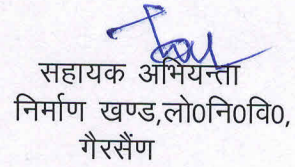 सहायक अभियन्ता
निर्माण खण्ड,लो0नि0वि0,
गैरसैंण